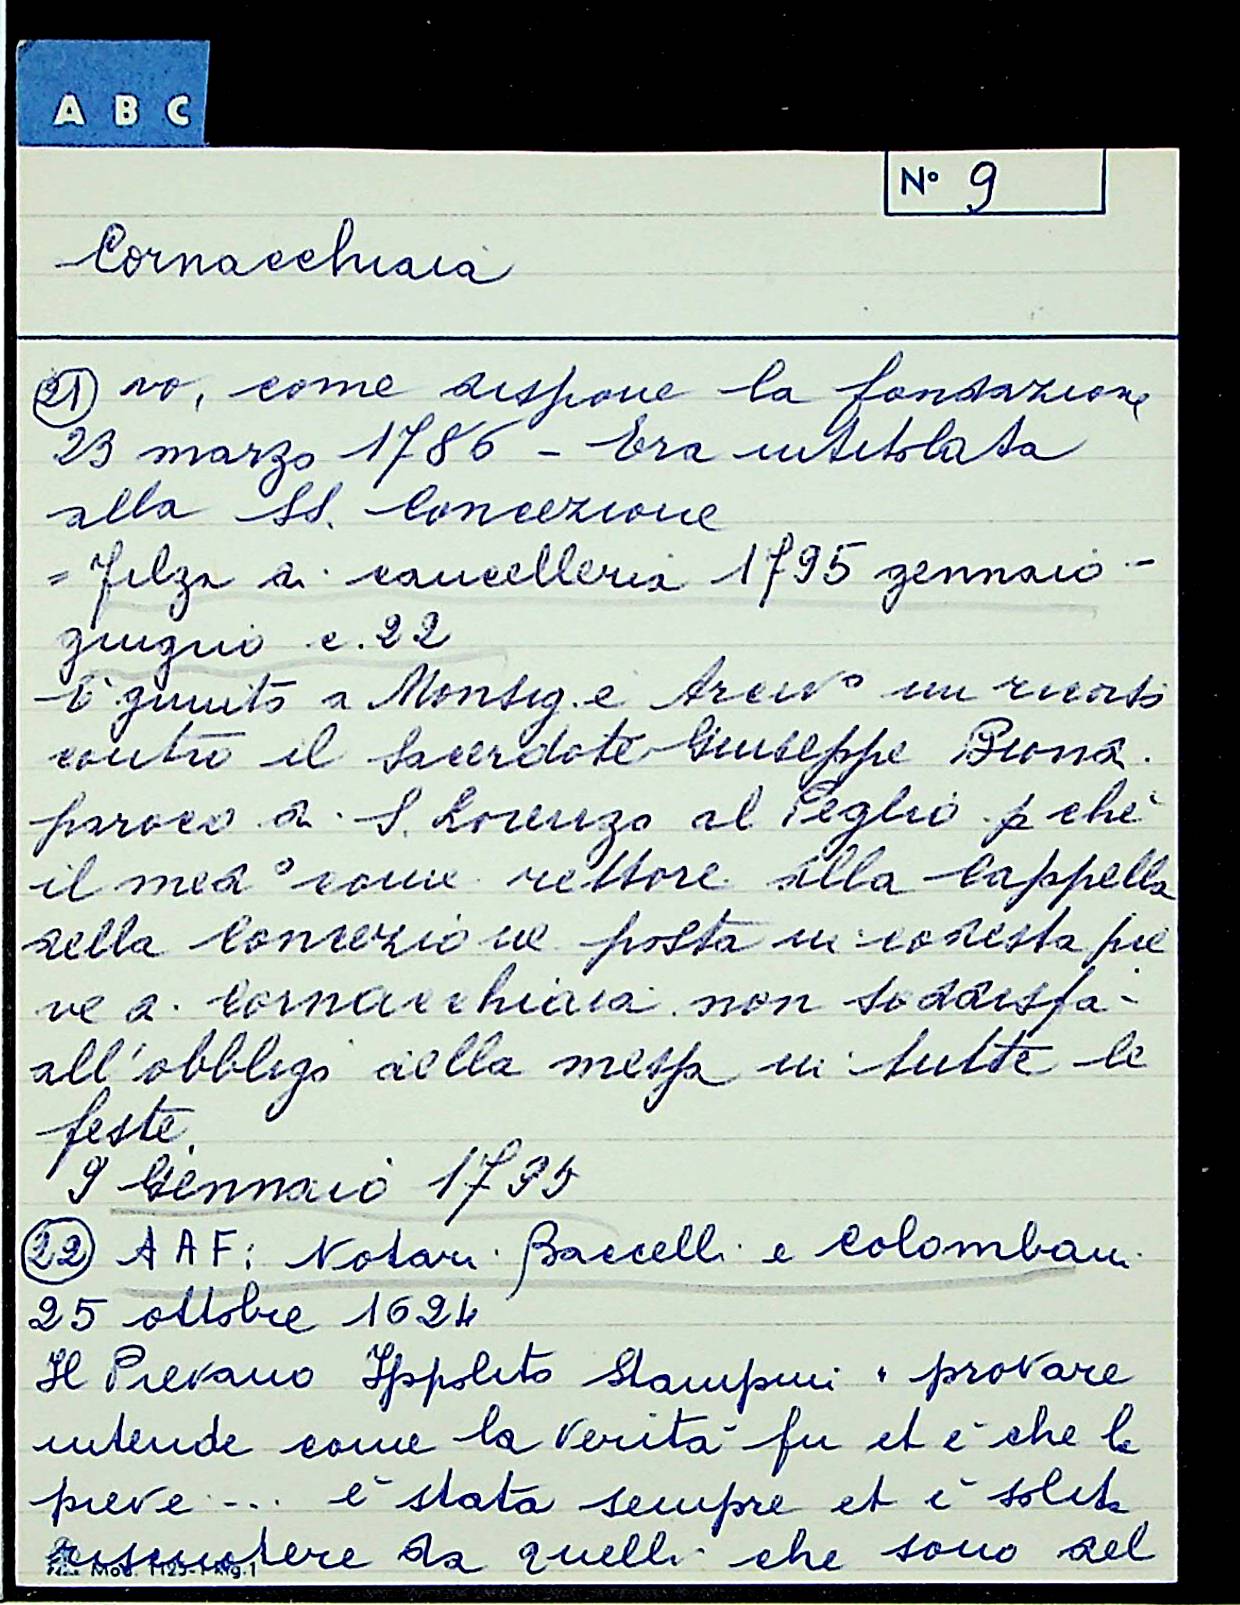 A B C
N° 9
Cornacchiaia
21) vo, come dispone la fondazione
23 marzo 1786 - Era intitolata
alla SS. Concezione
= Filza di cancelleria 1795 gennaio -
giugno c. 22
È giunto a Monsig. e Arciv° un ricorso
contro il Sacerdote Giuseppe Biondi
paroco di S. Lorenzo al Peglio p chè
il med° come rettore alla Cappella
della Concezione posta in codesta pie
ve di Cornacchiaia non soddisfa
all'obbligo della messa in tutte le
feste.
9 Gennaio 1795
22) AAF: Notari Baccelli e Colombani
25 ottobre 1624
Il Pievano Ippolito Stampini " provare
intende come la verità fu et è che la
pieve .... è stata sempre et è solita
riscuotere da quelli che sono del
Mod. 1125-1 Rig.1